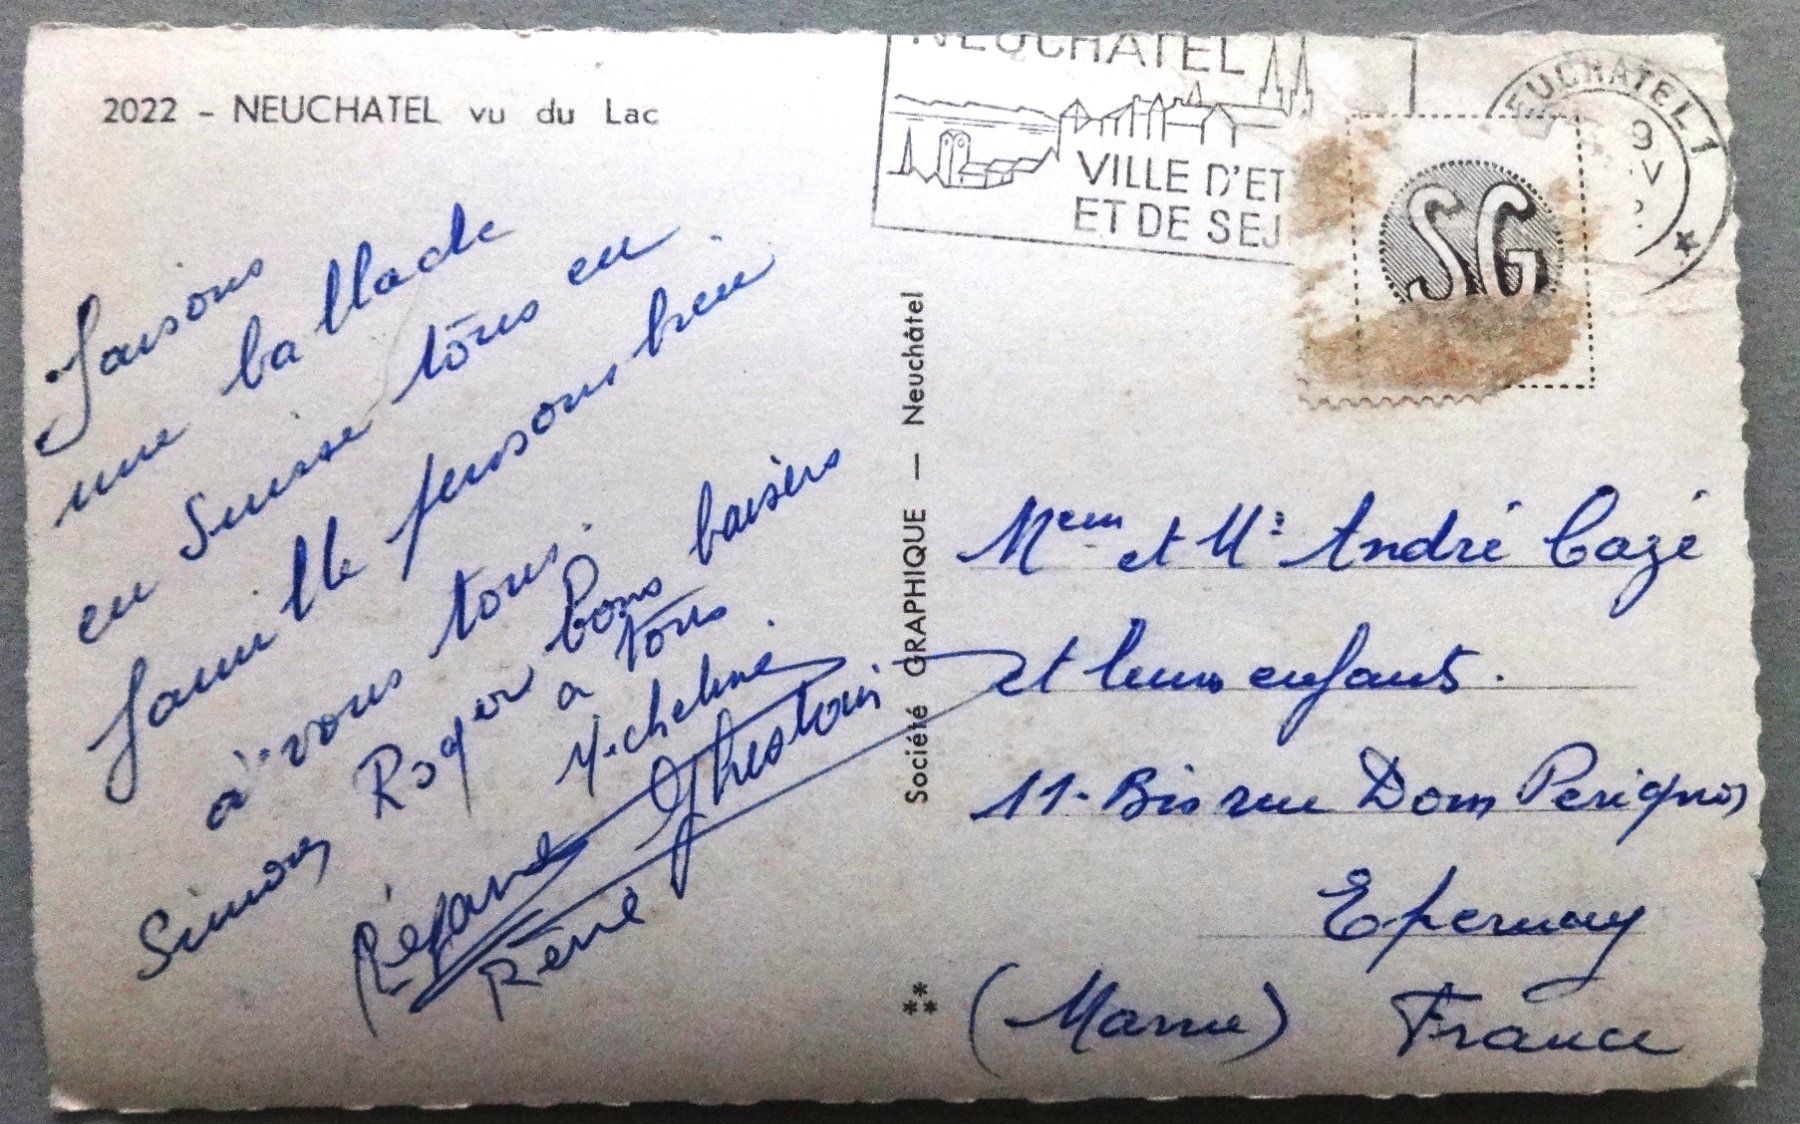 2022 - NEUCHATEL vu du Lac
NEUCHATEL
VILLE D'ET
ET DE SEJ
EUCHATEL 1
9
SG
Société GRAPHIQUE — Neuchâtel
faisons
une ballade
en Suisse tous en
famille pensons bien
à vous tous.
Simone Roger Bons baisers
a tous
Micheline
Réjane Ghestain
René
Mem et Mr André Cazé
et leurs enfants.
11 - Bis rue Dom Perignon
Epernay
(Marne) France